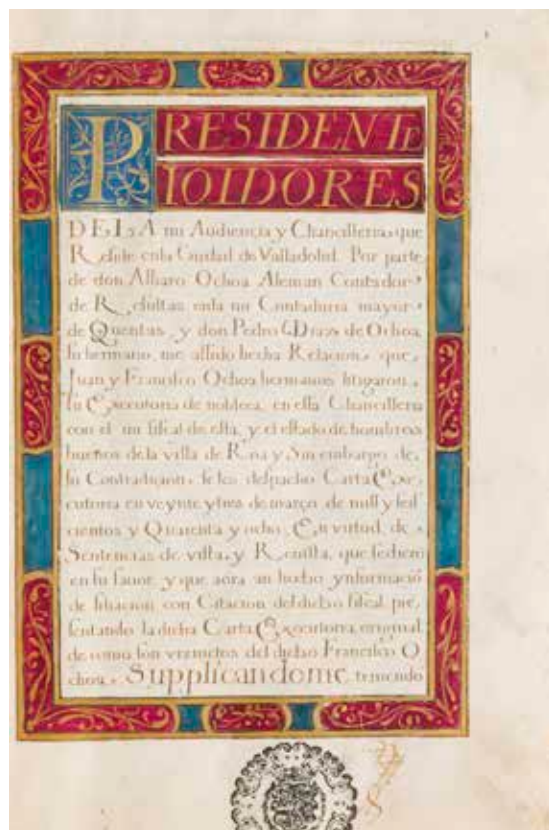 PRESIDENTE
YOIDORES
DE LA mi Audiencia y Chancilleria, que
Reside enla Ciudad de Valladolid. Por parte
de don Alvaro Ochoa Aleman Contador
de Resultas enla mi Contaduria mayor
de Quentas, y don Pedro Diaz de Ochoa
su hermano, me assido hecha Relacion, que
Juan y Francisco Ochoa hermanos litigaron
su Executoria de nobleca, en essa Chancilleria
con el mi fiscal de ella, y el estado de hombres
buenos dela villa de Roa y Sin embargo de
su Contradicion, se les despacho Carta Exe
cutoria en veynte y tres de março de mill y seis
cientos y Quarenta y ocho, En virtud, de
Sentencias de vista, y Revista, que se diero
en su favor, y que aora an hecho ynformacio
de filiacion con Citacion del dicho fiscal pre
sentando la dicha Carta Executoria original
de como son del dicho Francisco O
choa, Supplicandome teniendo